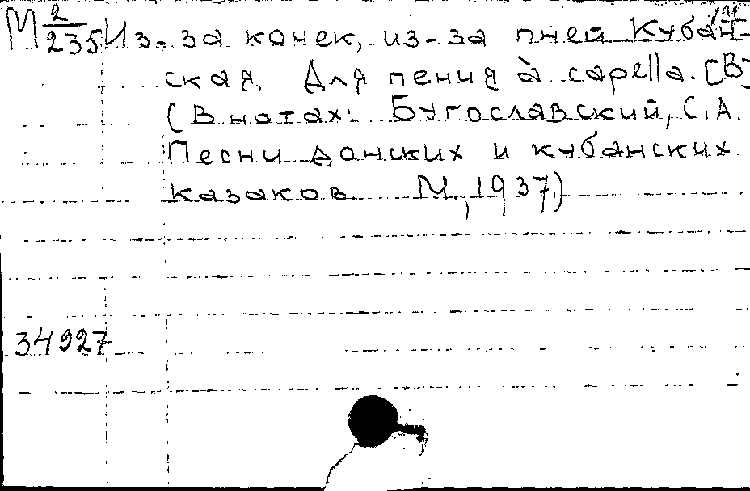 М 2/235 Из-за конек, из-за пней Кубан-
ская. Для пения à capella. [В]
(В нотах: Бугославский, С.А.
Песни донских и кубанских
казаков М, 1937.)
34927